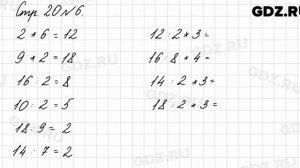 GDZ.RU
Стр. 20 № 6.
2 * 6 = 12
9 * 2 = 18
16 : 2 = 8
10 : 2 = 5
18 : 9 = 2
14 : 7 = 2
12 : 2 * 3 =
16 : 8 * 4 =
14 : 2 * 3 =
18 : 2 * 3 =
GDZ.RU